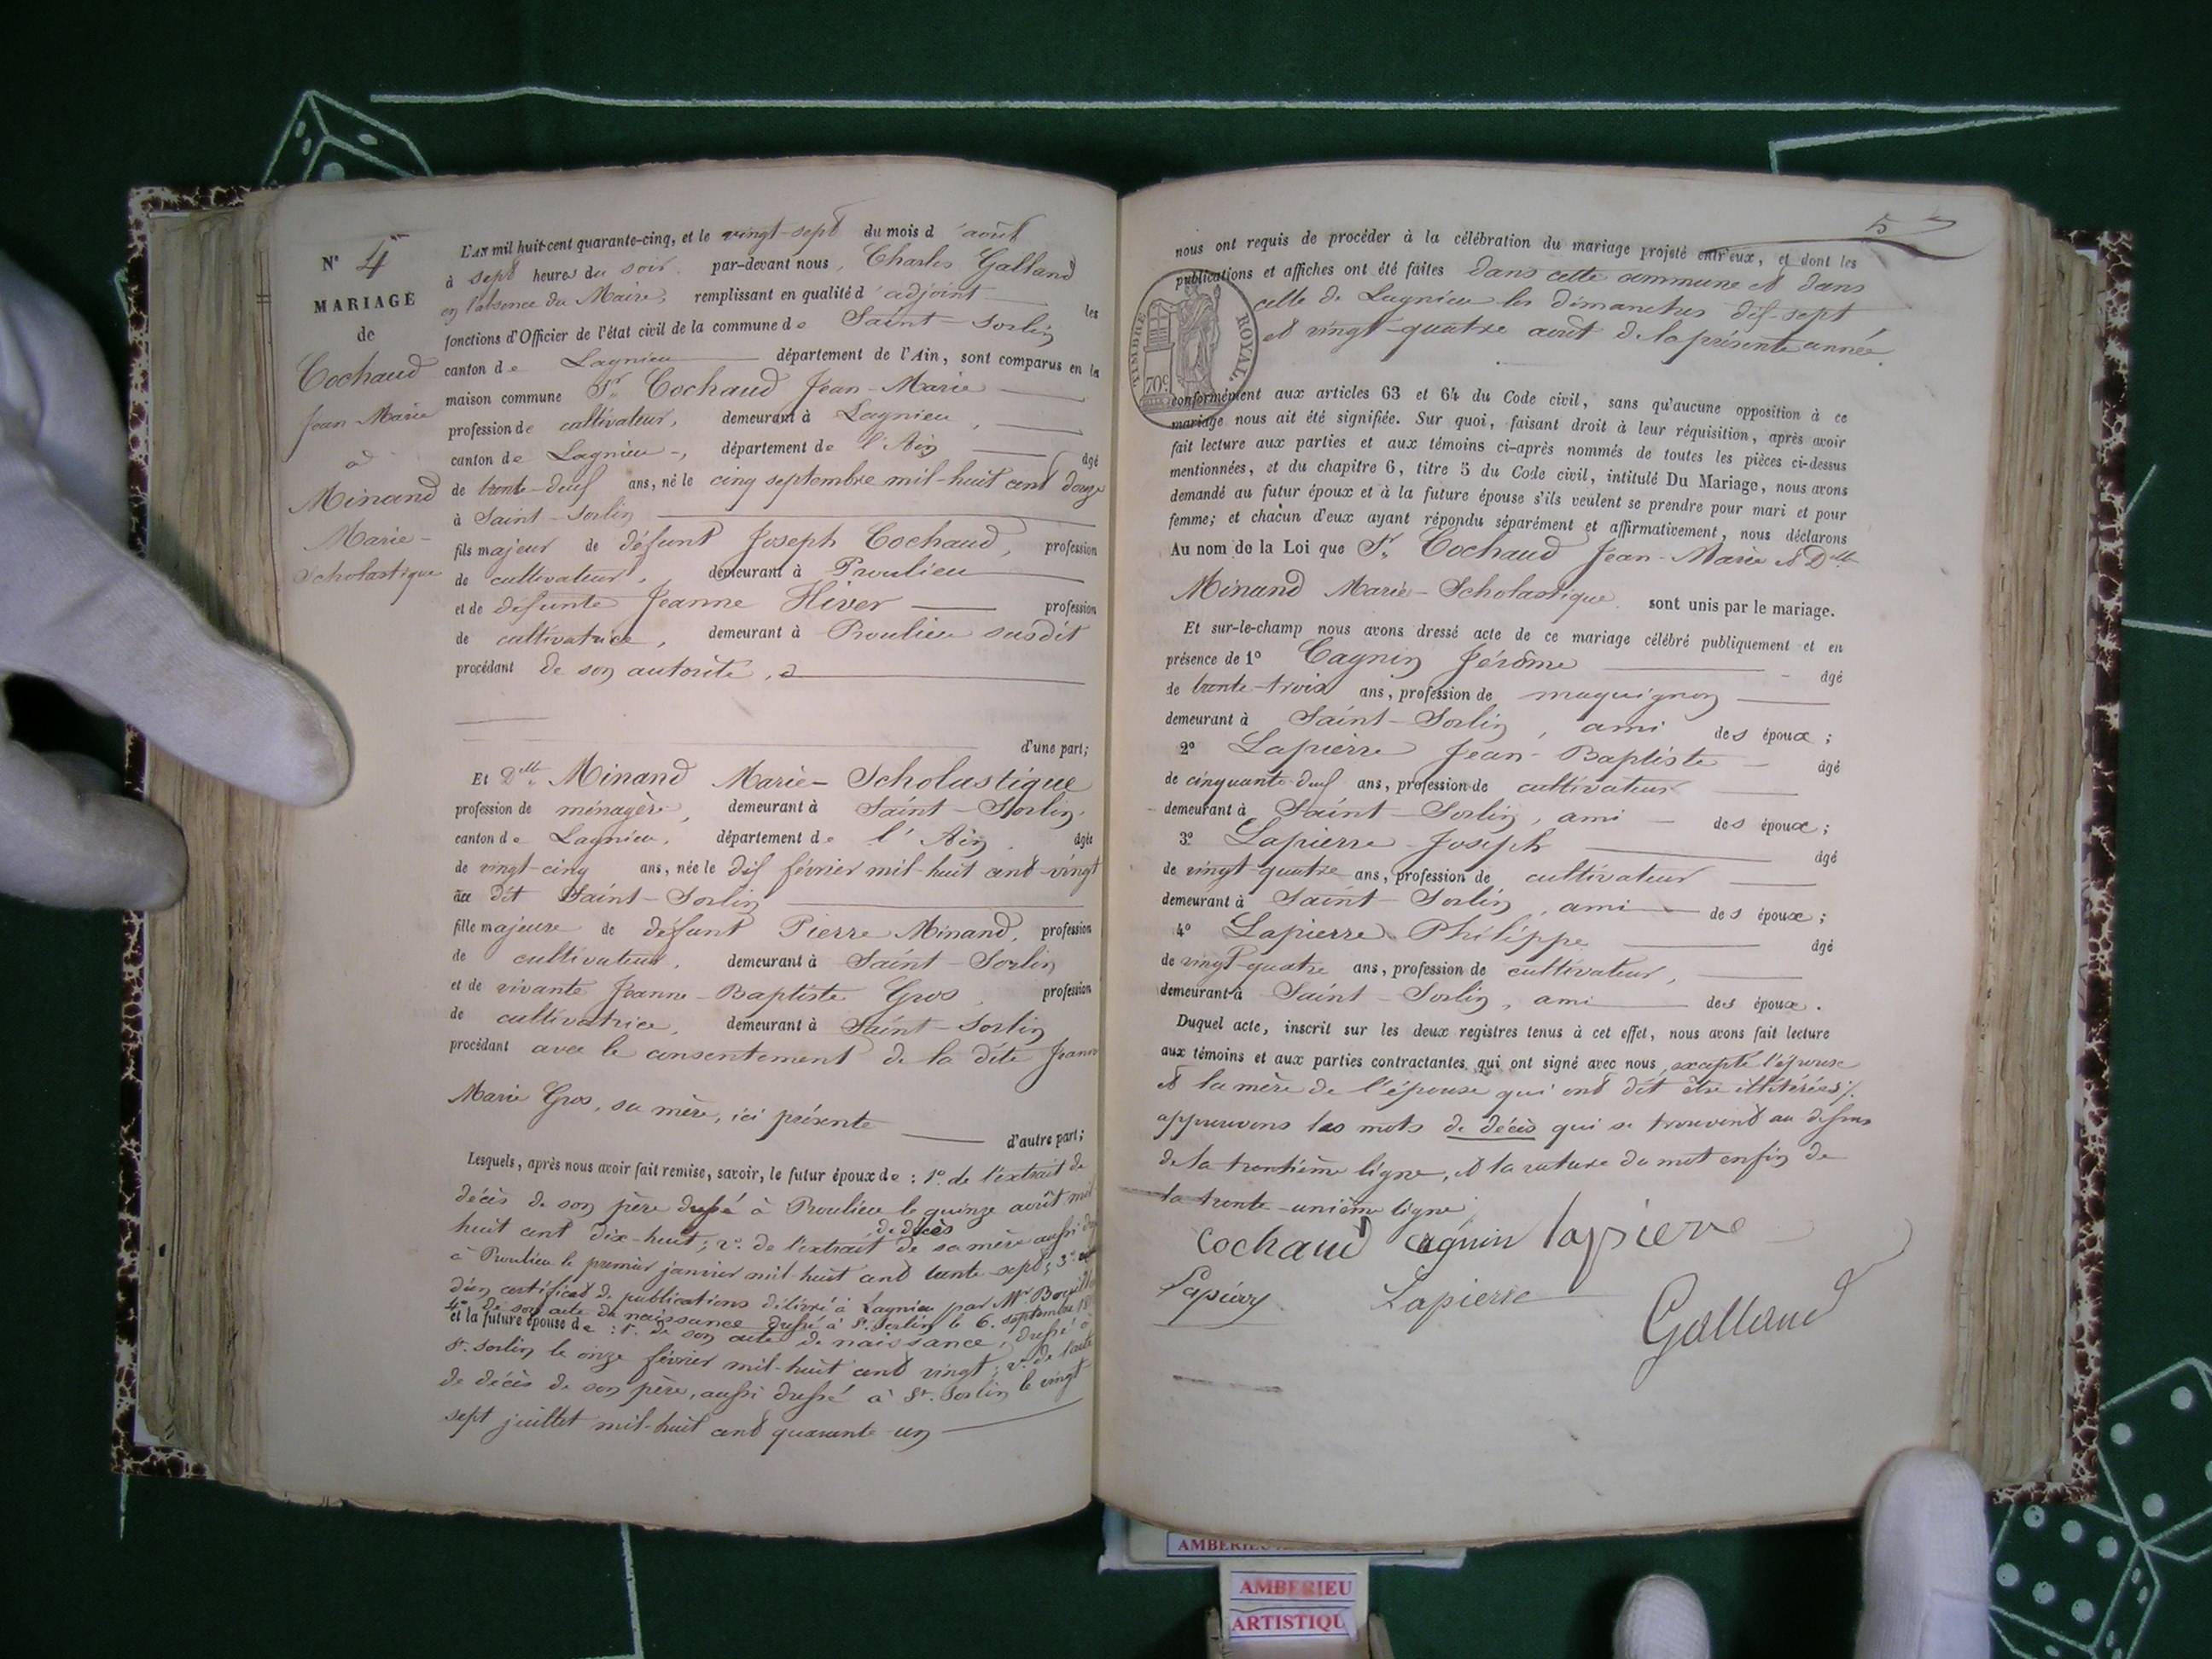 N° 4
MARIAGE
de
Cochaud
Jean Marie
à
Minand
Marie-
Scholastique
L'AN mil huit-cent quarante-cinq, et le vingt-sept du mois d'août
à sept heures du soir. par-devant nous, Charles Galland
en l'absence du Maire, remplissant en qualité d'adjoint les
fonctions d'Officier de l'état civil de la commune de Saint-Sorlin
canton de Lagnieu département de l'Ain, sont comparus en la
maison commune Sr Cochaud Jean-Marie
profession de cultivateur, demeurant à Lagnieu,
canton de Lagnieu-, département de l'Ain âgé
de trente-deuf ans, né le cinq septembre mil-huit cent douze
à Saint-Sorlin
fils majeur de défunt Joseph Cochaud, profession
de cultivateur, demeurant à Proulieu
et de défunte Jeanne Hiver profession
de cultivatrice, demeurant à Proulieu susdit
procédant de son autorité,
d'une part;
Et Delle Minand Marie-Scholastique
profession de ménagère, demeurant à Saint-Sorlin,
canton de Lagnieu, département de l'Ain âgée
de vingt-cinq ans, née le dif février mil-huit cent-vingt
au dit Saint-Sorlin
fille majeure de défunt Pierre Minand, profession
de cultivateur, demeurant à Saint-Sorlin
et de vivante Jeanne-Baptiste Gros, profession
de cultivatrice, demeurant à Saint-Sorlin
procédant avec le consentement de la dite Jeanne
Marie Gros, sa mère, ici présente
d'autre part;
Lesquels, après nous avoir fait remise, savoir, le futur époux de : 1° de l'extrait de
décès de son père dressé à Proulieu le quinze août mil
huit cent dix-huit; 2° de l'extrait de décès de sa mère aussi
à Proulieu le premier janvier mil-huit cent trente-sept; 3°
d'un certificat de publications délivré à Lagnieu par Mr
4° de son acte de naissance dressé à St. Sorlin le 6. septembre
et la future épouse de : 1°. de son acte de naissance, dressé à
St. Sorlin le onze février mil-huit cent vingt; 2° de l'acte
de décès de son père, aussi dressé à St. Sorlin le vingt
sept juillet mil-huit cent quarante-un
5
nous ont requis de procéder à la célébration du mariage projeté entr'eux, et dont les
publications et affiches ont été faites dans cette commune et dans
celle de Lagnieu les dimanches dif-sept
et vingt-quatre août de la présente année
TIMBRE ROYAL.
70c
conformément aux articles 63 et 64 du Code civil, sans qu'aucune opposition à ce
mariage nous ait été signifiée. Sur quoi, faisant droit à leur réquisition, après avoir
fait lecture aux parties et aux témoins ci-après nommés de toutes les pièces ci-dessus
mentionnées, et du chapitre 6, titre 5 du Code civil, intitulé Du Mariage, nous avons
demandé au futur époux et à la future épouse s'ils veulent se prendre pour mari et pour
femme; et chacun d'eux ayant répondu séparément et affirmativement, nous déclarons
Au nom de la Loi que Sr Cochaud Jean-Marie et Delle
Minand Marie-Scholastique. sont unis par le mariage.
Et sur-le-champ nous avons dressé acte de ce mariage célébré publiquement et en
présence de 1° Cagnin Jérôme âgé
de trente-trois ans, profession de maquignon
demeurant à Saint-Sorlin, ami des époux;
2° Lapierre Jean-Baptiste âgé
de cinquante-deuf ans, profession de cultivateur
demeurant à Saint-Sorlin, ami des époux;
3° Lapierre Joseph âgé
de vingt-quatre ans, profession de cultivateur
demeurant à Saint-Sorlin, ami des époux;
4° Lapierre Philippe âgé
de vingt-quatre ans, profession de cultivateur,
demeurant à Saint-Sorlin, ami des époux.
Duquel acte, inscrit sur les deux registres tenus à cet effet, nous avons fait lecture
aux témoins et aux parties contractantes qui ont signé avec nous excepté l'épouse
et la mère de l'épouse qui ont dit être illitérées
approuvons les mots de décès qui se trouvent au dessus
de la trentième ligne, et la rature du mot enfin de
la trente-unième ligne
Cochaud Cagnin lapierre
Lapierre Lapierre
Galland
AMBERIEU
ARTISTIQU